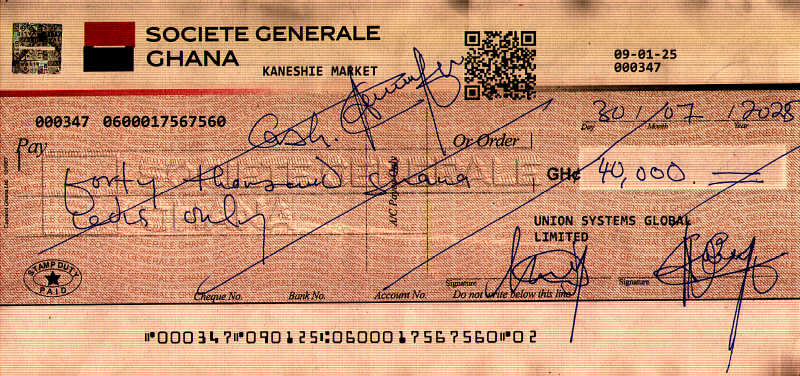 SOCIETE GENERALE
GHANA
KANESHIE MARKET
09-01-25
000347
000347 0600017567560
30/07/2025
Day Month Year
Pay Cash. Or Order
forty thousand Ghana GH¢ 40,000.
cedis only
A/C Payee Only
UNION SYSTEMS GLOBAL
LIMITED
STAMP DUTY
PAID
Signature Signature
Cheque No. Bank No. Account No. Do not write below this line
⑈000347⑈090125⑆0600017567560⑈02